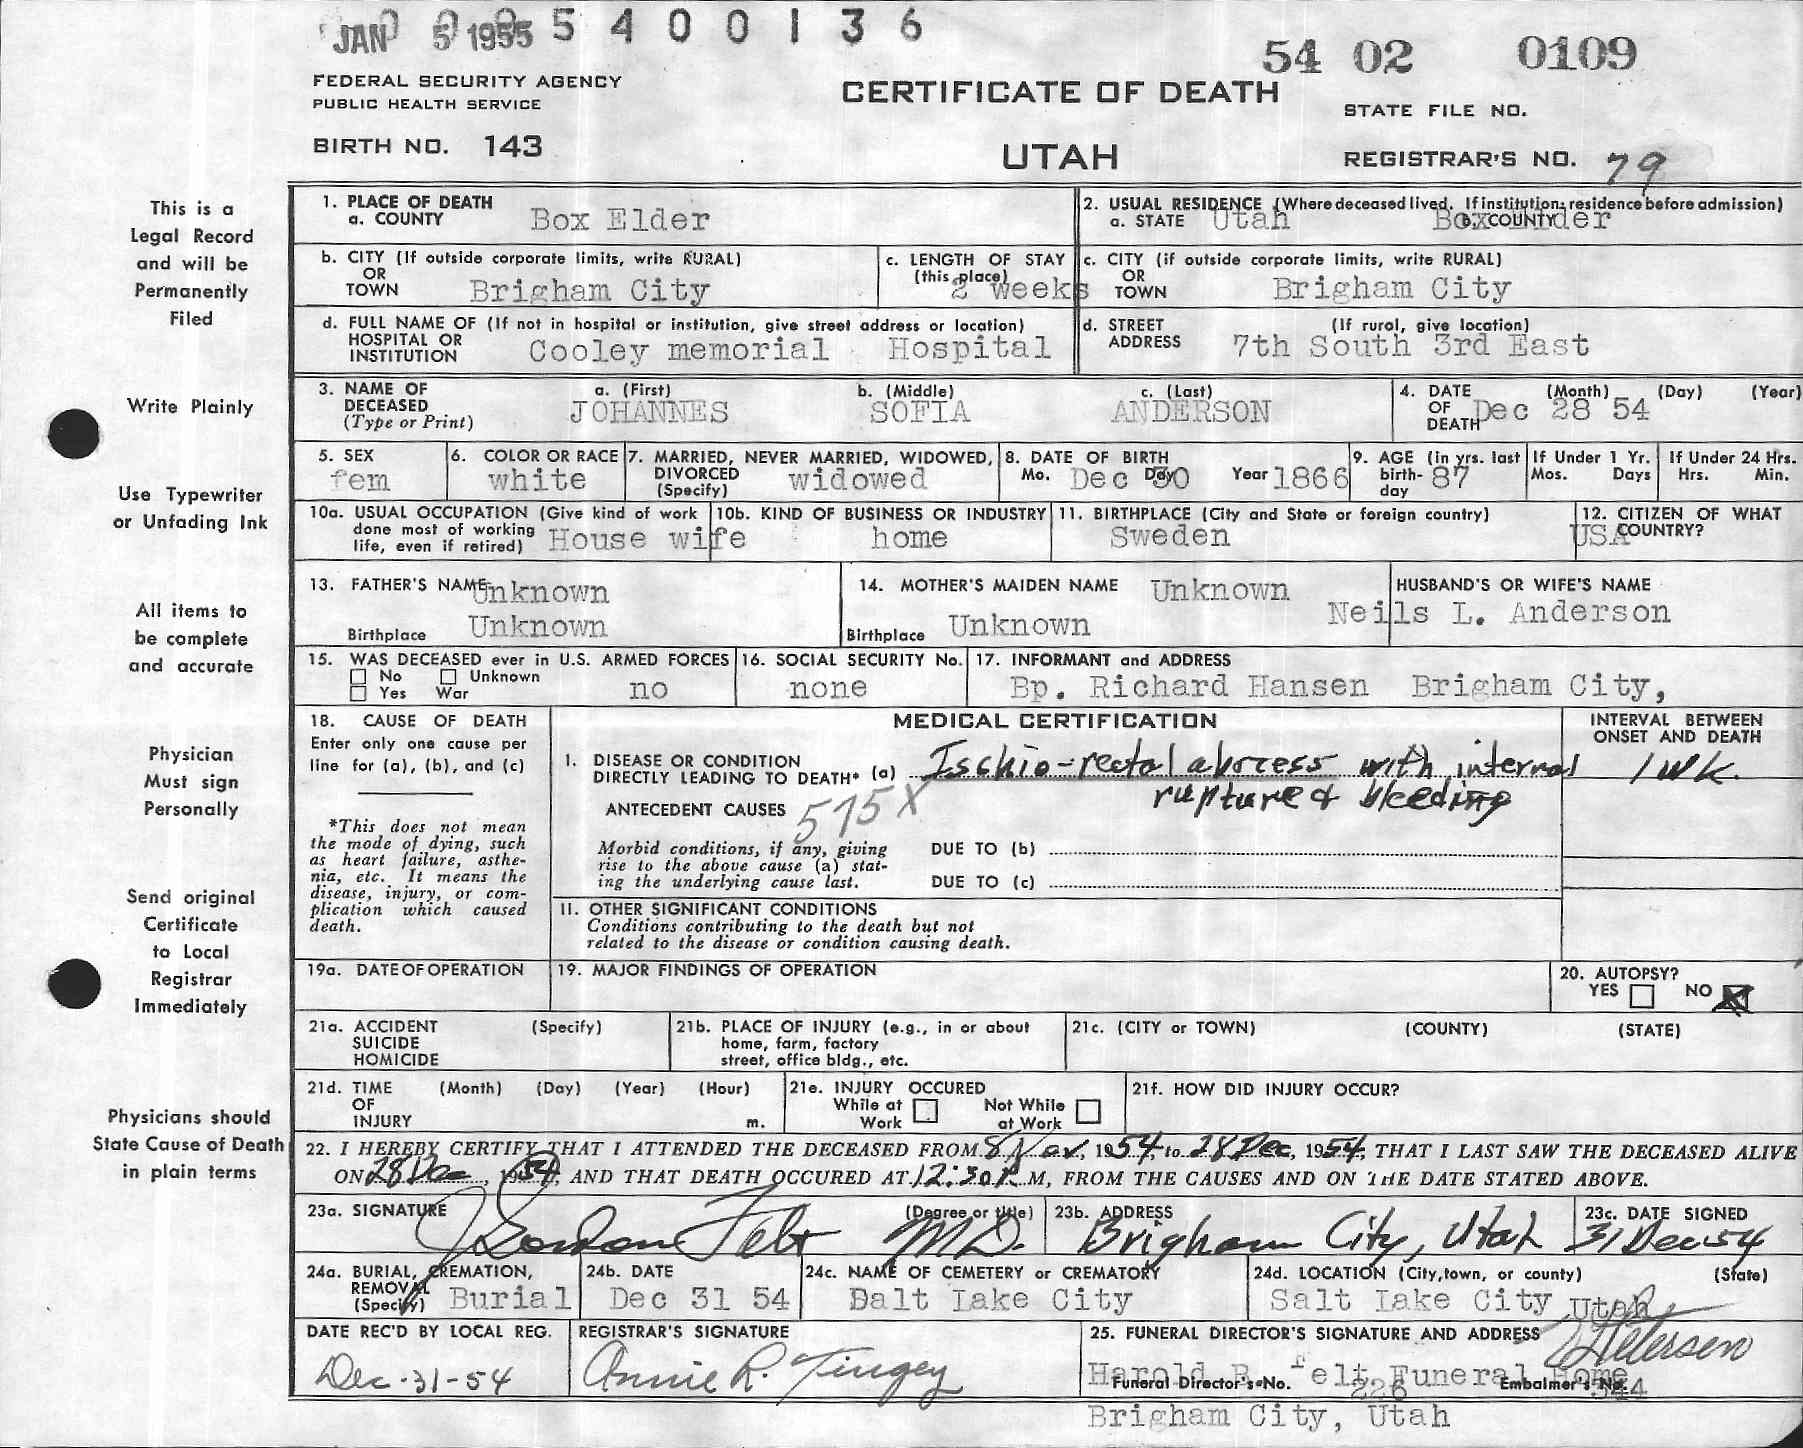 JAN 5 1955 0 0 0 5 4 0 0 1 3 6
54 02 0109
FEDERAL SECURITY AGENCY
PUBLIC HEALTH SERVICE
CERTIFICATE OF DEATH
STATE FILE NO.
BIRTH NO. 143
UTAH
REGISTRAR'S NO. 79
This is a
Legal Record
and will be
Permanently
Filed
Write Plainly
Use Typewriter
or Unfading Ink
All items to
be complete
and accurate
Physician
Must sign
Personally
Send original
Certificate
to Local
Registrar
Immediately
Physicians should
State Cause of Death
in plain terms
1. PLACE OF DEATH
a. COUNTY Box Elder
2. USUAL RESIDENCE (Where deceased lived. If institution: residence before admission)
a. STATE Utah b. COUNTY Box Elder
b. CITY (If outside corporate limits, write RURAL)
OR
TOWN Brigham City
c. LENGTH OF STAY
(this place)
2 weeks
c. CITY (if outside corporate limits, write RURAL)
OR
TOWN Brigham City
d. FULL NAME OF (If not in hospital or institution, give street address or location)
HOSPITAL OR
INSTITUTION Cooley memorial Hospital
d. STREET (If rural, give location)
ADDRESS 7th South 3rd East
3. NAME OF
DECEASED
(Type or Print)
a. (First) b. (Middle) c. (Last)
JOHANNES SOFIA ANDERSON
4. DATE (Month) (Day) (Year)
OF
DEATH Dec 28 54
5. SEX
fem
6. COLOR OR RACE
white
7. MARRIED, NEVER MARRIED, WIDOWED,
DIVORCED
(Specify) widowed
8. DATE OF BIRTH
Mo. Dec Day 30 Year 1866
9. AGE (in yrs. last
birth-
day 87
If Under 1 Yr.
Mos. Days
If Under 24 Hrs.
Hrs. Min.
10a. USUAL OCCUPATION (Give kind of work
done most of working
life, even if retired) House wife
10b. KIND OF BUSINESS OR INDUSTRY
home
11. BIRTHPLACE (City and State or foreign country)
Sweden
12. CITIZEN OF WHAT
COUNTRY?
USA
13. FATHER'S NAME Unknown
Birthplace Unknown
14. MOTHER'S MAIDEN NAME Unknown
Birthplace Unknown
HUSBAND'S OR WIFE'S NAME
Neils L. Anderson
15. WAS DECEASED ever in U.S. ARMED FORCES
No Unknown
Yes War no
16. SOCIAL SECURITY No.
none
17. INFORMANT and ADDRESS
Bp. Richard Hansen Brigham City,
18. CAUSE OF DEATH
Enter only one cause per
line for (a), (b), and (c)
*This does not mean
the mode of dying, such
as heart failure, asthe-
nia, etc. It means the
disease, injury, or com-
plication which caused
death.
MEDICAL CERTIFICATION
INTERVAL BETWEEN
ONSET AND DEATH
1. DISEASE OR CONDITION
DIRECTLY LEADING TO DEATH* (a) Ischio-rectal abscess with internal
rupture & bleeding
1 wk.
ANTECEDENT CAUSES 575X
Morbid conditions, if any, giving
rise to the above cause (a) stat-
ing the underlying cause last.
DUE TO (b)
DUE TO (c)
11. OTHER SIGNIFICANT CONDITIONS
Conditions contributing to the death but not
related to the disease or condition causing death.
19a. DATE OF OPERATION
19. MAJOR FINDINGS OF OPERATION
20. AUTOPSY?
YES NO
21a. ACCIDENT (Specify)
SUICIDE
HOMICIDE
21b. PLACE OF INJURY (e.g., in or about
home, farm, factory
street, office bldg., etc.
21c. (CITY or TOWN) (COUNTY) (STATE)
21d. TIME (Month) (Day) (Year) (Hour)
OF
INJURY m.
21e. INJURY OCCURED
While at Not While
Work at Work
21f. HOW DID INJURY OCCUR?
22. I HEREBY CERTIFY THAT I ATTENDED THE DECEASED FROM 8 Nov, 1954, to 28 Dec, 1954, THAT I LAST SAW THE DECEASED ALIVE
ON 28 Dec, 1954, AND THAT DEATH OCCURED AT 12:30 P.M, FROM THE CAUSES AND ON THE DATE STATED ABOVE.
23a. SIGNATURE (Degree or title)
J Gordon Felt M.D.
23b. ADDRESS
Brigham City, Utah
23c. DATE SIGNED
31 Dec 54
24a. BURIAL, CREMATION,
REMOVAL
(Specify) Burial
24b. DATE
Dec 31 54
24c. NAME OF CEMETERY or CREMATORY
Dalt Lake City
24d. LOCATION (City, town, or county) (State)
Salt Lake City Utah
DATE REC'D BY LOCAL REG.
Dec-31-54
REGISTRAR'S SIGNATURE
Annie R. Tingey
25. FUNERAL DIRECTOR'S SIGNATURE AND ADDRESS
Petersen
Harold B. Felt Funeral Home
Funeral Director's No. 226 Embalmer's No. 344
Brigham City, Utah